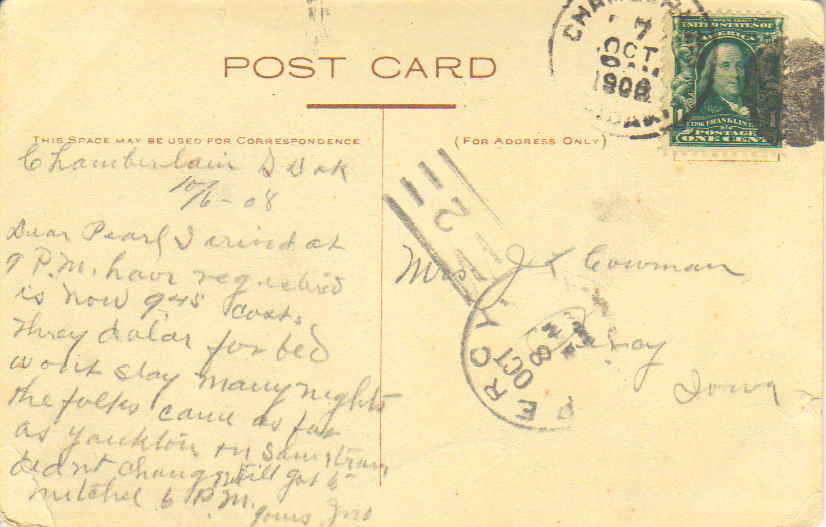 POST CARD
THIS SPACE MAY BE USED FOR CORRESPONDENCE
(FOR ADDRESS ONLY)
CHAMBER
7
OCT
1908
DAK
UNITED STATES OF
AMERICA
FRANKLIN
POSTAGE
ONE CENT
Chamberlain S Dak
10/6-08
Dear Pearl I arived at
9 P.M. have registered
is now 945 costs
threy dolar for bed
wont stay many nights
the folks came as far
as yankton on same train
didnt change till got to
Mitchel 6 P.M.
yours Jno
Mrs. J Cowman
Percy
Iowa
2
PERCY
OCT
8